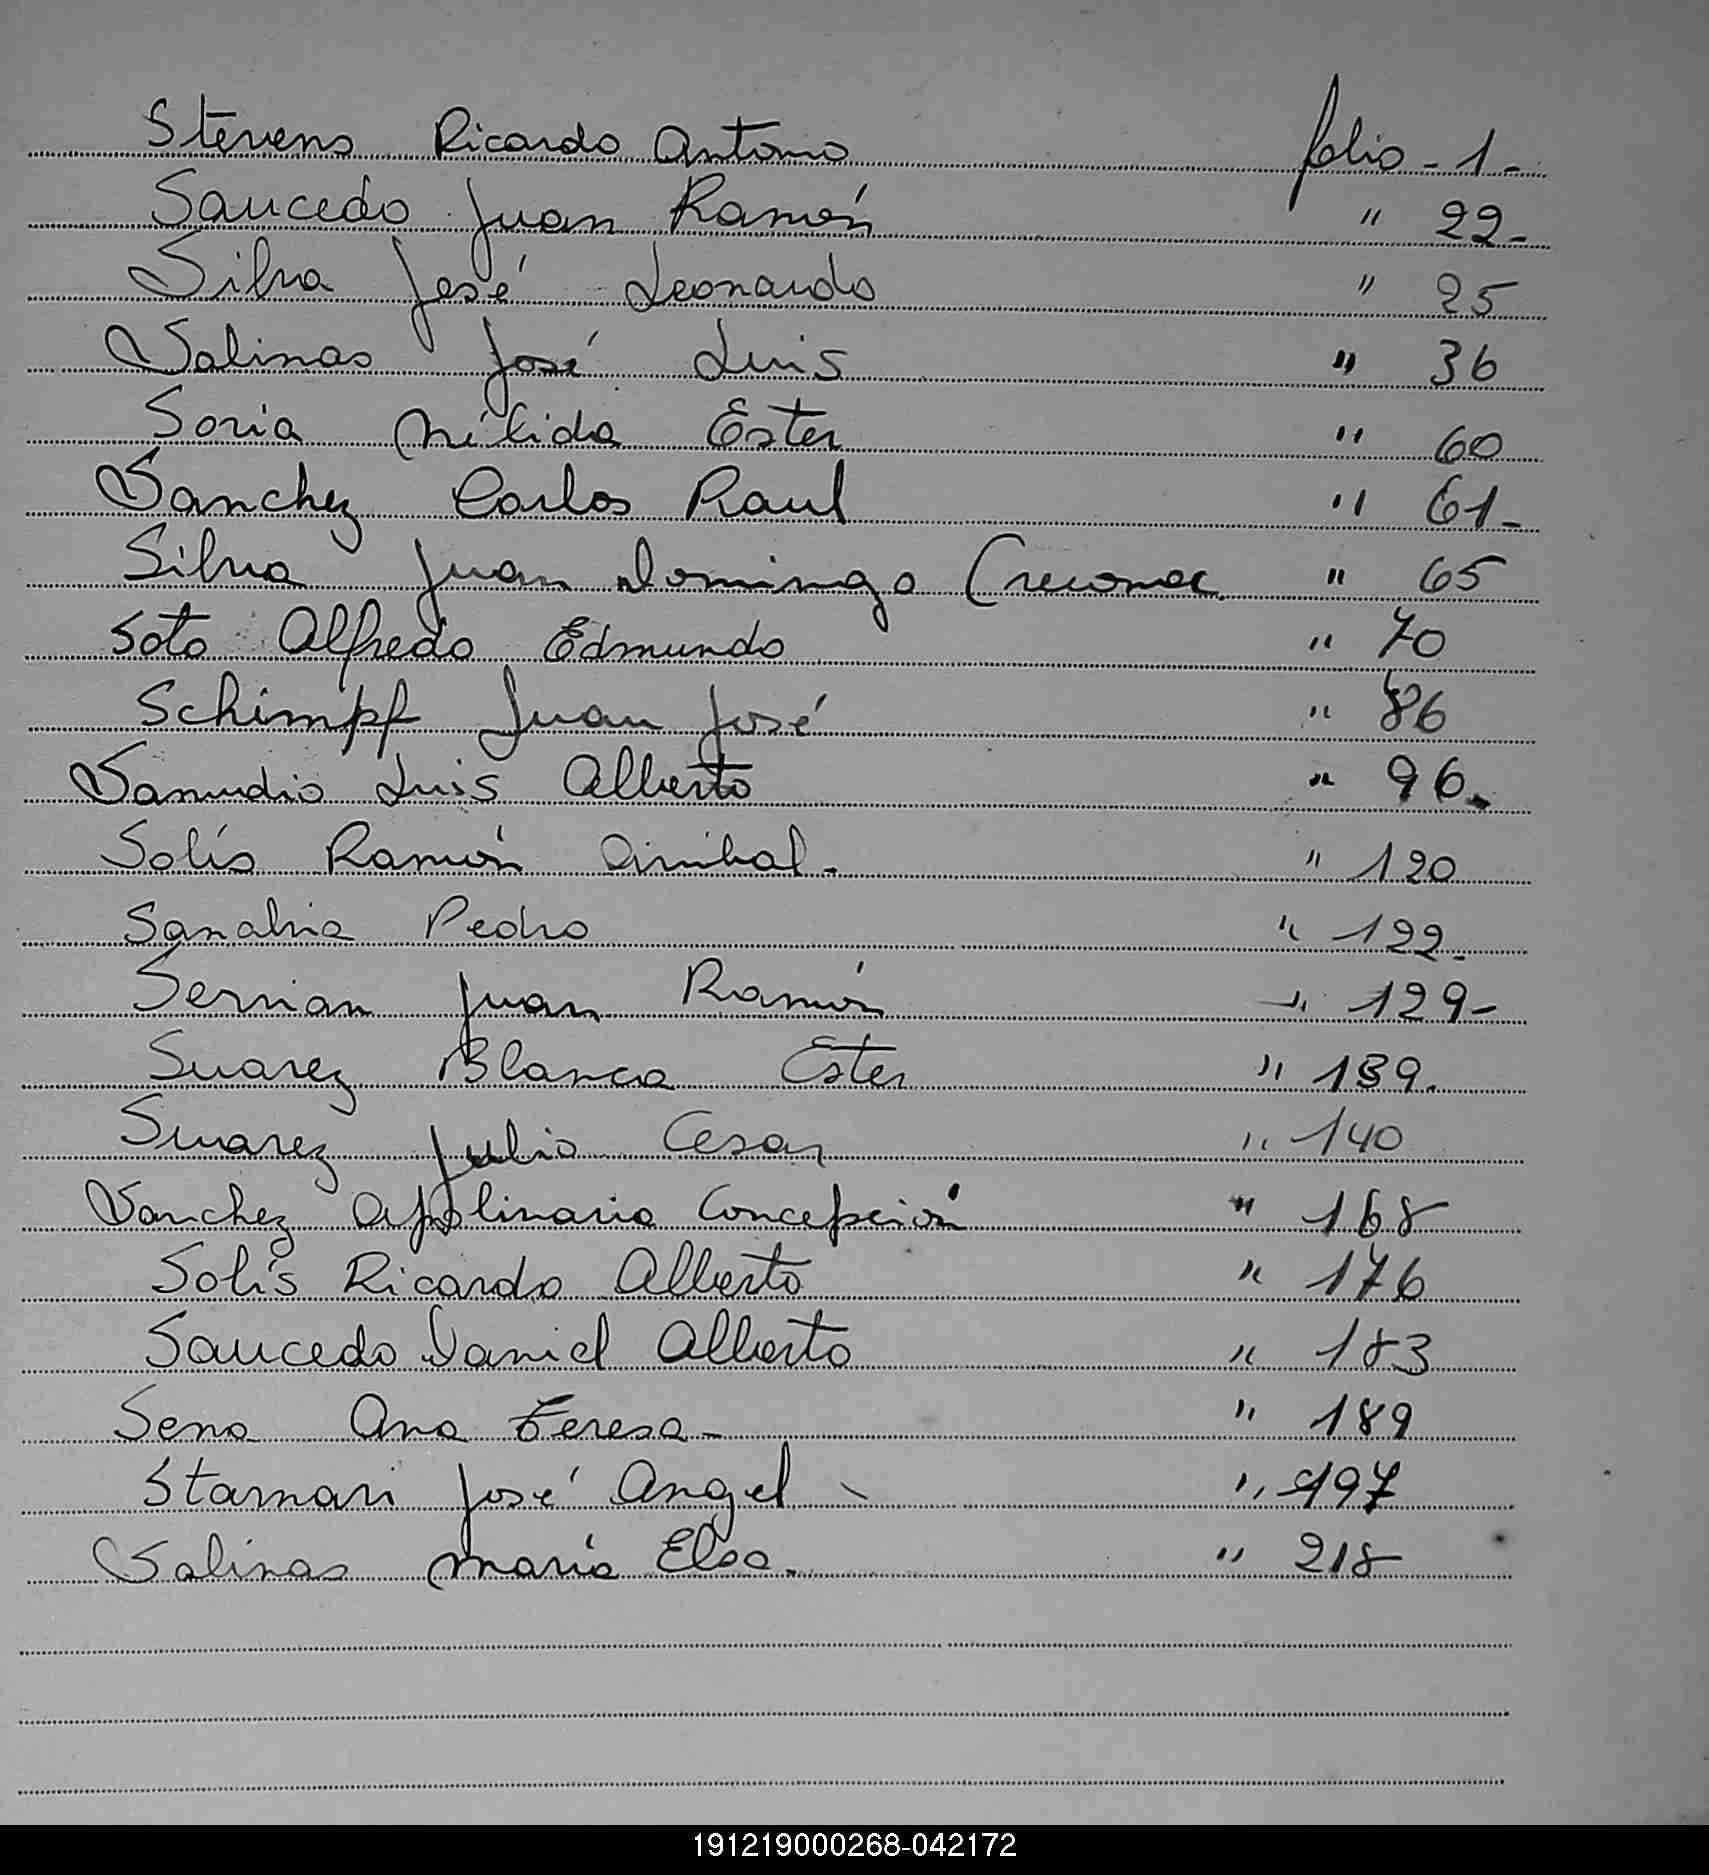 Stevens Ricardo Antonio folio - 1 -
Saucedo Juan Ramón " 22 -
Silva José Leonardo " 25
Salinas José Luis " 36
Soria Nélida Ester " 60
Sanchez Carlos Raul " 61 -
Silva Juan Domingo (reconoc. " 65
Soto Alfredo Edmundo " 70
Schimpf Juan José " 86
Samudio Luis Alberto " 96.
Solís Ramón Anibal - " 120
Sanabria Pedro " 122 -
Serrian Juan Ramón " 129 -
Suarez Blanca Ester " 139.
Suarez Julio Cesar " 140
Sanchez Apolinaria Concepción " 168
Solís Ricardo Alberto " 176
Saucedo Daniel Alberto " 183
Sena Ana Teresa - " 189
Stamari José Angel - " 197
Salinas María Elsa. " 218
191219000268-042172